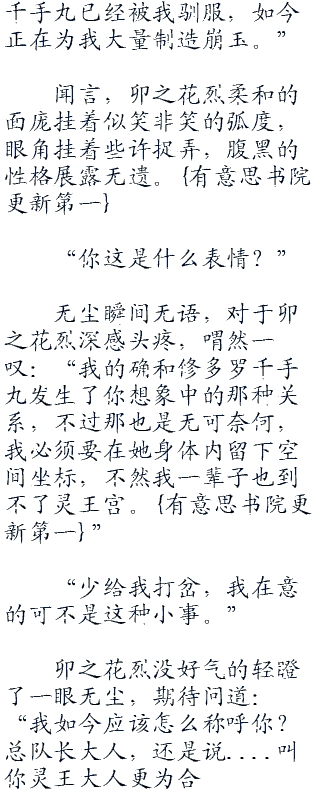 千手丸已经被我驯服，如今
正在为我大量制造崩玉。”
闻言，卯之花烈柔和的
面庞挂着似笑非笑的弧度，
眼角挂着些许捉弄，腹黑的
性格展露无遗。{有意思书院
更新第一}
“你这是什么表情？”
无尘瞬间无语，对于卯
之花烈深感头疼，喟然一
叹：“我的确和修多罗千手
丸发生了你想象中的那种关
系，不过那也是无可奈何，
我必须要在她身体内留下空
间坐标，不然我一辈子也到
不了灵王宫。{有意思书院更
新第一}”
“少给我打岔，我在意
的可不是这种小事。”
卯之花烈没好气的轻瞪
了一眼无尘，期待问道：
“我如今应该怎么称呼你？
总队长大人，还是说....叫
你灵王大人更为合